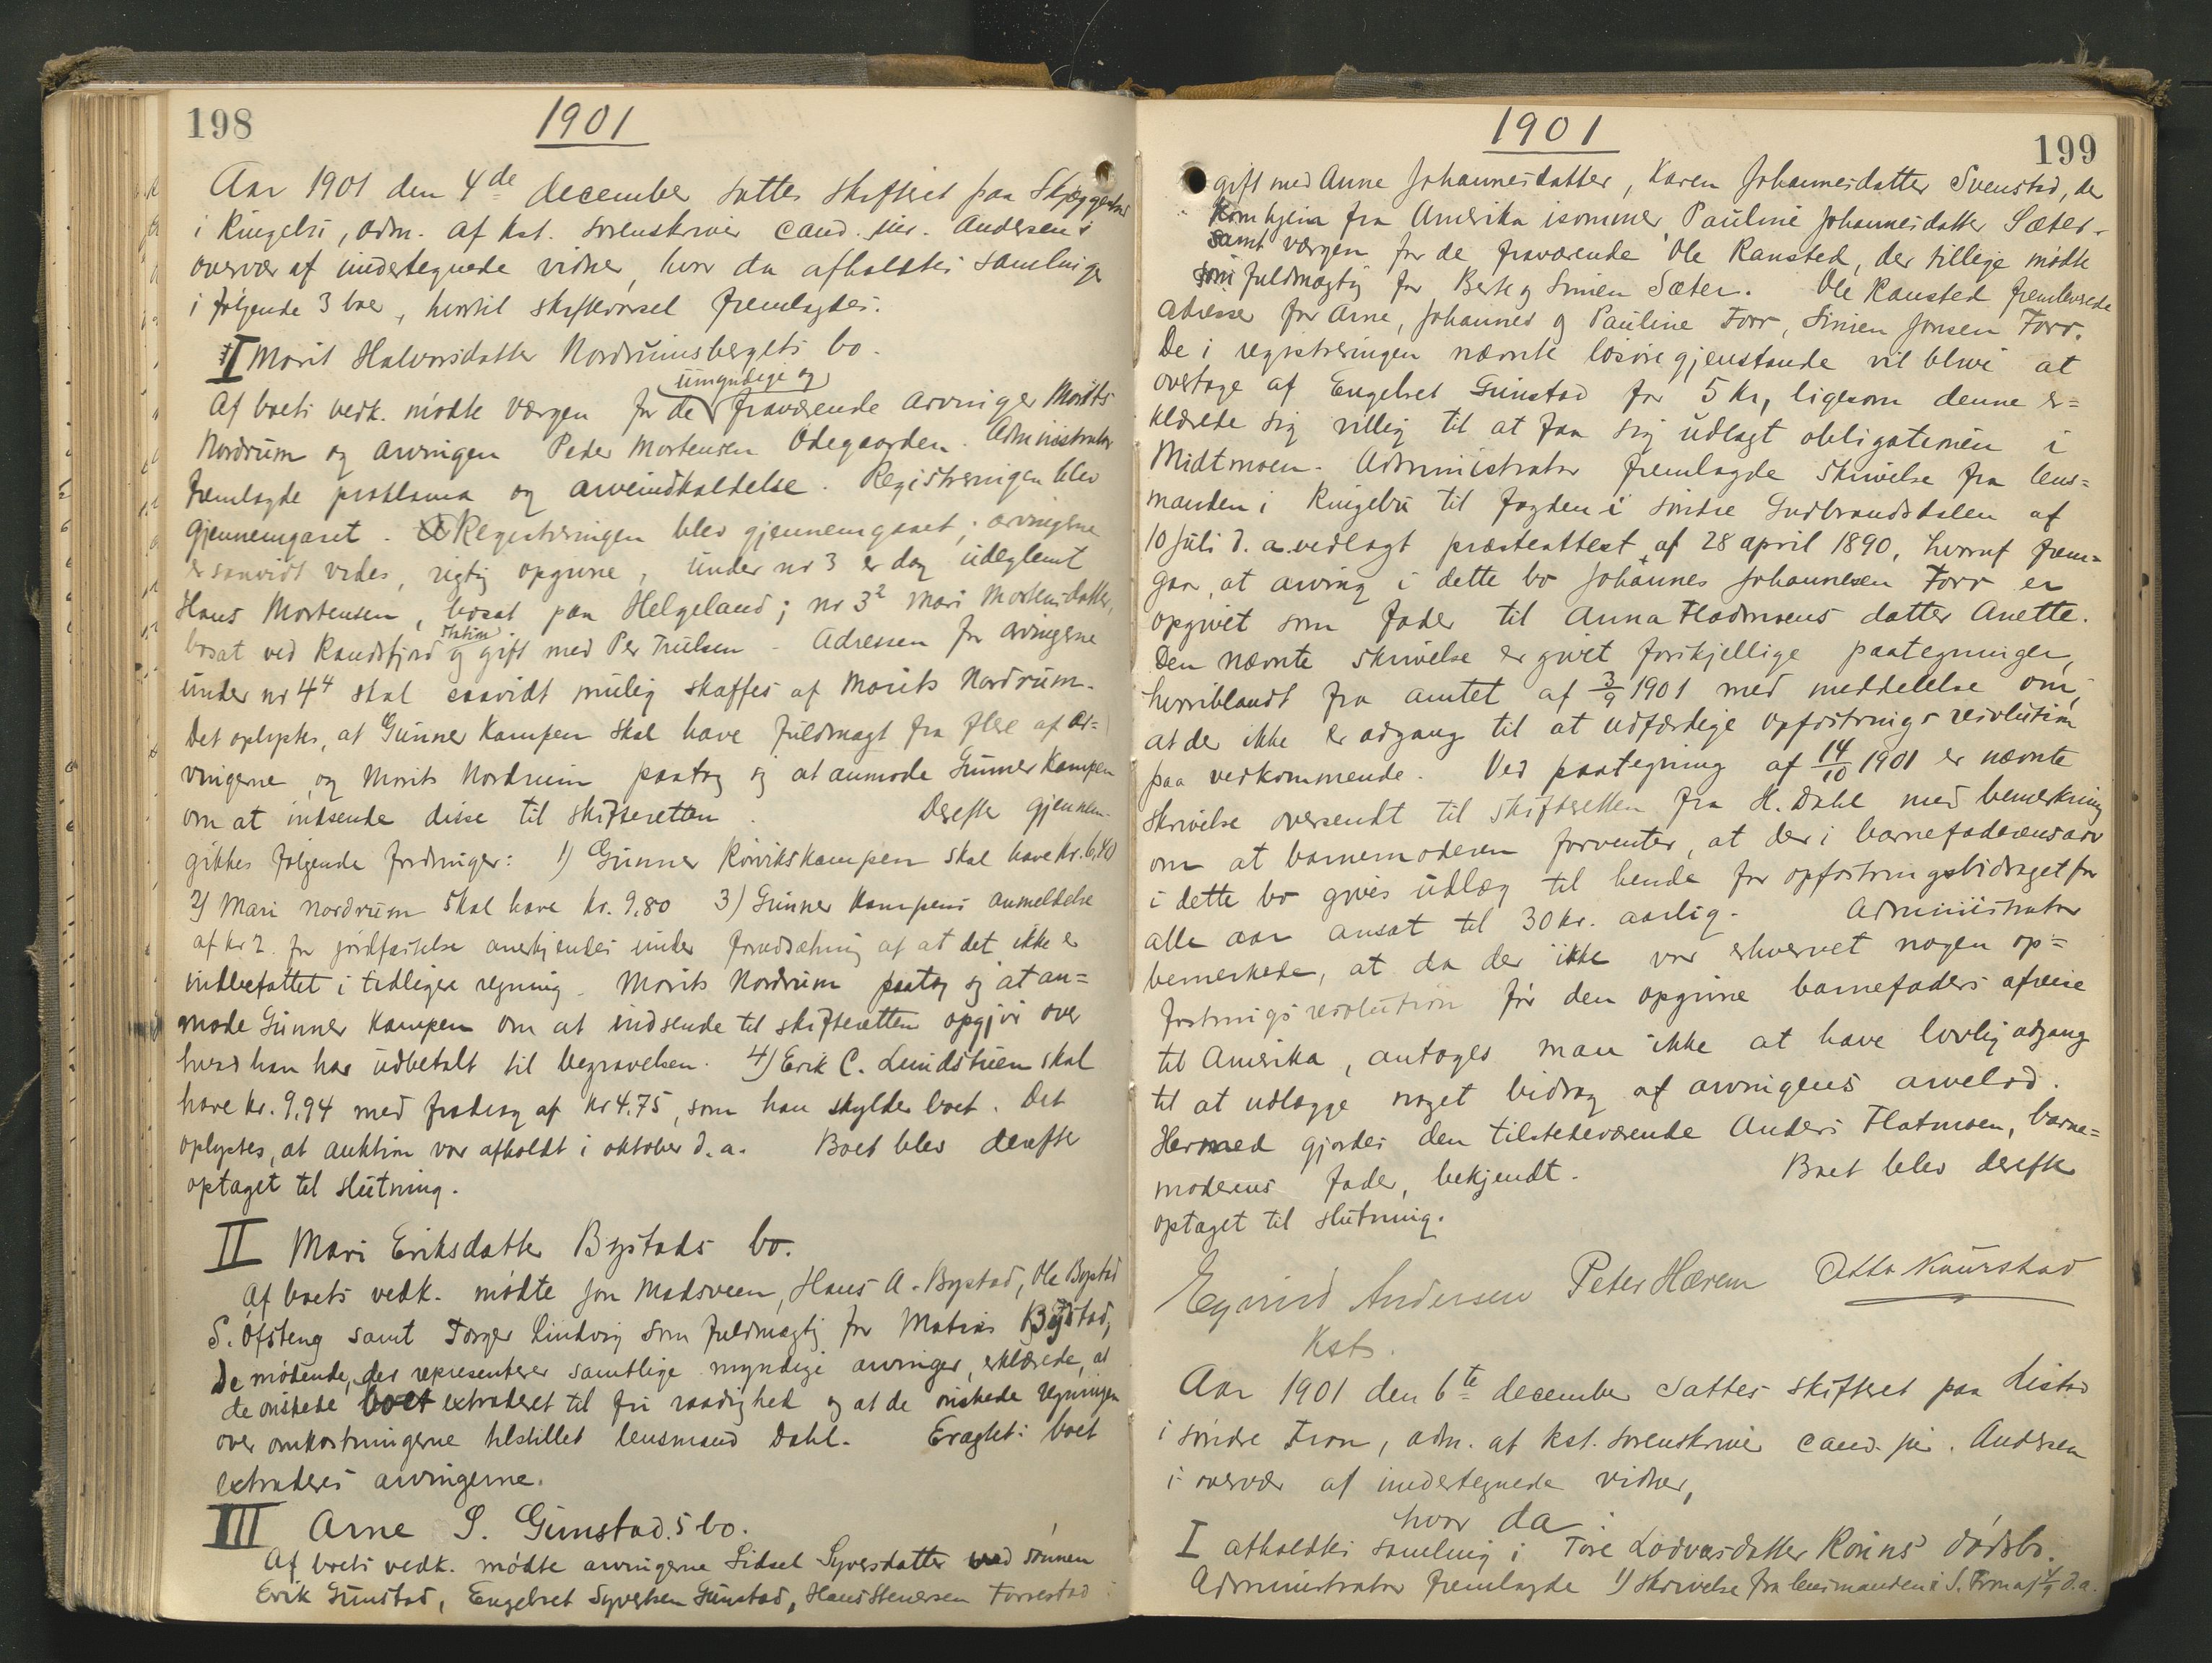 198
1901
Aar 1901 den 4de december sattes skifteret paa Skjeggestad
i Ringebu, adm. af kst. sorenskriver cand. jur. Andersen i
overvær af undertegnede vidner, hvor da afholdtes samlinger
i følgende 3 boer, hvortil skiftevarsel fremlagdes.
I Marit Halvorsdatter Nordrumsbergets bo.
umyndige og
Af boets vedk. mødte værgen for de fraværende arvinger Morits
Nordrum og arvingen Peder Mortensen Ødegaarden. Administrator
fremlagde proklama og arveindkaldelse. Registreringen blev
gjennemgaaet. Registreringen blev gjennemgaaet; arvingerne
er saavidt vides, rigtig opgivne, under nr 3 er dog udeglemt
Hans Mortensen, bosat paa Helgeland; nr 3² Mari Mortensdatter,
station
bosat ved Randsfjord og gift med Per Trulsen. Adressen for arvingerne
under nr 4⁴ skal saavidt mulig skaffes af Morits Nordrum.
Det oplystes, at Gunner Kampen skal have fuldmagt fra flere af ar=
vingerne og Morits Nordrum paatog sig at anmode Gunner Kampen
om at indsende disse til skifteretten. Derefter gjennem-
gikkes følgende fordringer: 1) Gunner Rörvikskampen skal have kr. 6,40
2) Mari Nordrum skal have kr. 9,80 3) Gunner Kampens anmeldelse
af kr 2. for jordfæstelse anerkjendes under forudsætning af at det ikke er
indbefattet i tidligere regning. Morits Nordrum paatog sig at an=
mode Gunner Kampen om at indsende til skifteretten opgjør over
hvad han har udbetalt til begravelsen. 4) Erik C. Lundstuen skal
have kr. 9,94 med fradrag af kr 4.75, som han skylder boet. Det
oplystes, at auktion var afholdt i oktober d. a. Boet blev derefter
optaget til slutning.
II Mari Eriksdatter Bystads bo.
Af boets vedk. mødte Jon Madsveen, Hans A. Bystad, Ole Bystad
S. Ofsteng samt Torger Lindvig som fuldmægtig for Matias Bystad,
De mødende, der representerer samtlige myndige arvinger, erklærede, at
de ønskede boet extraderet til fri raadighed og at de ønskede regningen
over omkostningerne tilstillet lensmand Dahl. Eragtet: boet
extraderes arvingerne.
III Arne S. Gunstads bo.
Af boets vedk. mødte arvingerne Sidsel Syversdatter ved sønnen
Erik Gunstad, Engebret Syversen Gunstad, Hans Stenersen Forrestad
1901
199
gift med Anne Johannesdatter, Karen Johannesdatter Svenstad, der
kom hjem fra Amerika isommer, Pauline Johannesdatter Sæter.
samt værgen for de fraværende Ole Kansted, der tillige mødte
som fuldmægtig for Berte og Simen Sæter. Ole Kansted fremleverede
adresser for Arne, Johannes og Pauline Forr, Simen Jonsen Forr.
De i registreringen nævnte løsøregjenstande vil blive at
overtage af Engebret Gunstad for 5 kr, ligesom denne er=
klærede sig villig til at faa sig udlagt obligationen i
Midtmoen. Administrator fremlagde skrivelse fra lens=
manden i Ringebu til fogden i søndre Gudbrandsdalen af
10 juli d. a. vedlagt præsteattest af 28 april 1890, hvoraf frem=
gaar, at arving i dette bo Johannes Johannesen Forr er
opgivet som fader til Anna Flodmoens datter Anette.
Den nævnte skrivelse er givet forskjellige paategninger,
hvoriblandt fra amtet af 3/9 1901 med meddelelse om,
at der ikke er adgang til at udfærdige opfostringsresolution
paa vedkommende. Ved paategning af 14/10 1901 er nævnte
skrivelse oversendt til skifteretten fra H. Dahl med bemerkning
om at barnemoderen forventer, at der i barnefaderens arv
i dette bo gives udlæg til hende for opfostringsbidraget for
alle aar ansat til 30 kr. aarlig. Administrator
bemerkede, at da der ikke var erhvervet nogen op=
fostringsresolution før den opgivne barnefaders afreise
til Amerika, antoges man ikke at have lovlig adgang
til at udlægge noget bidrag af arvingens arvelod.
Hermed gjordes den tilstedeværende Anders Flatmoen, barne=
moderens fader, bekjendt. Boet blev derefter
optaget til slutning.
Eyvind Andersen Peter Hærem Otto Kaurstad
Kst.
Aar 1901 den 6te december sattes skifteret paa Listad
i søndre Fron, adm. af kst. sorenskriver cand. jur. Andersen
i overvær af undertegnede vidner,
hvor da:
I afholdtes samling i Tore Lodvarsdatter Rønns dødsbo.
Administrator fremlagde 1) skrivelse fra lensmanden i S. Fron af 4/9 d.a.